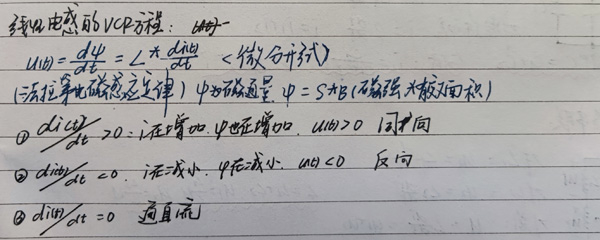 线性电感的VCR方程:
u(t)=dψ/dt=L*di(t)/dt <微分形式>
(法拉第电磁感应定律) ψ为磁通量 ψ=S*B(磁强*截面积)
① di(t)/dt>0:i在增加.ψ也在增加. u(t)>0 同向
② di(t)/dt<0. i在减小.ψ在减小. u(t)<0 反向
③ di(t)/dt=0 通直流